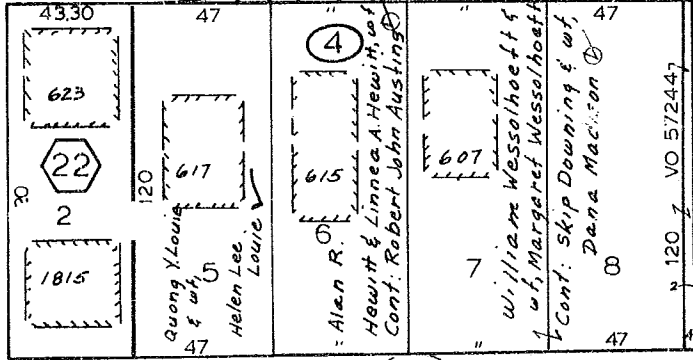 43.30
623
22
20
2
1815
47
120
617
Quong Y. Louie
& wf,
Helen Lee
Louie
5
47
"
4
615
6
Alan R.
Hewitt & Linnea A. Hewitt, wf
Cont: Robert John Austin
"
"
607
7
William Wessolhoeft &
wf, Margaret Wessolhoeft
"
Cont: Skip Downing & wf,
Dana Madison
8
47
120
VO 572447
2